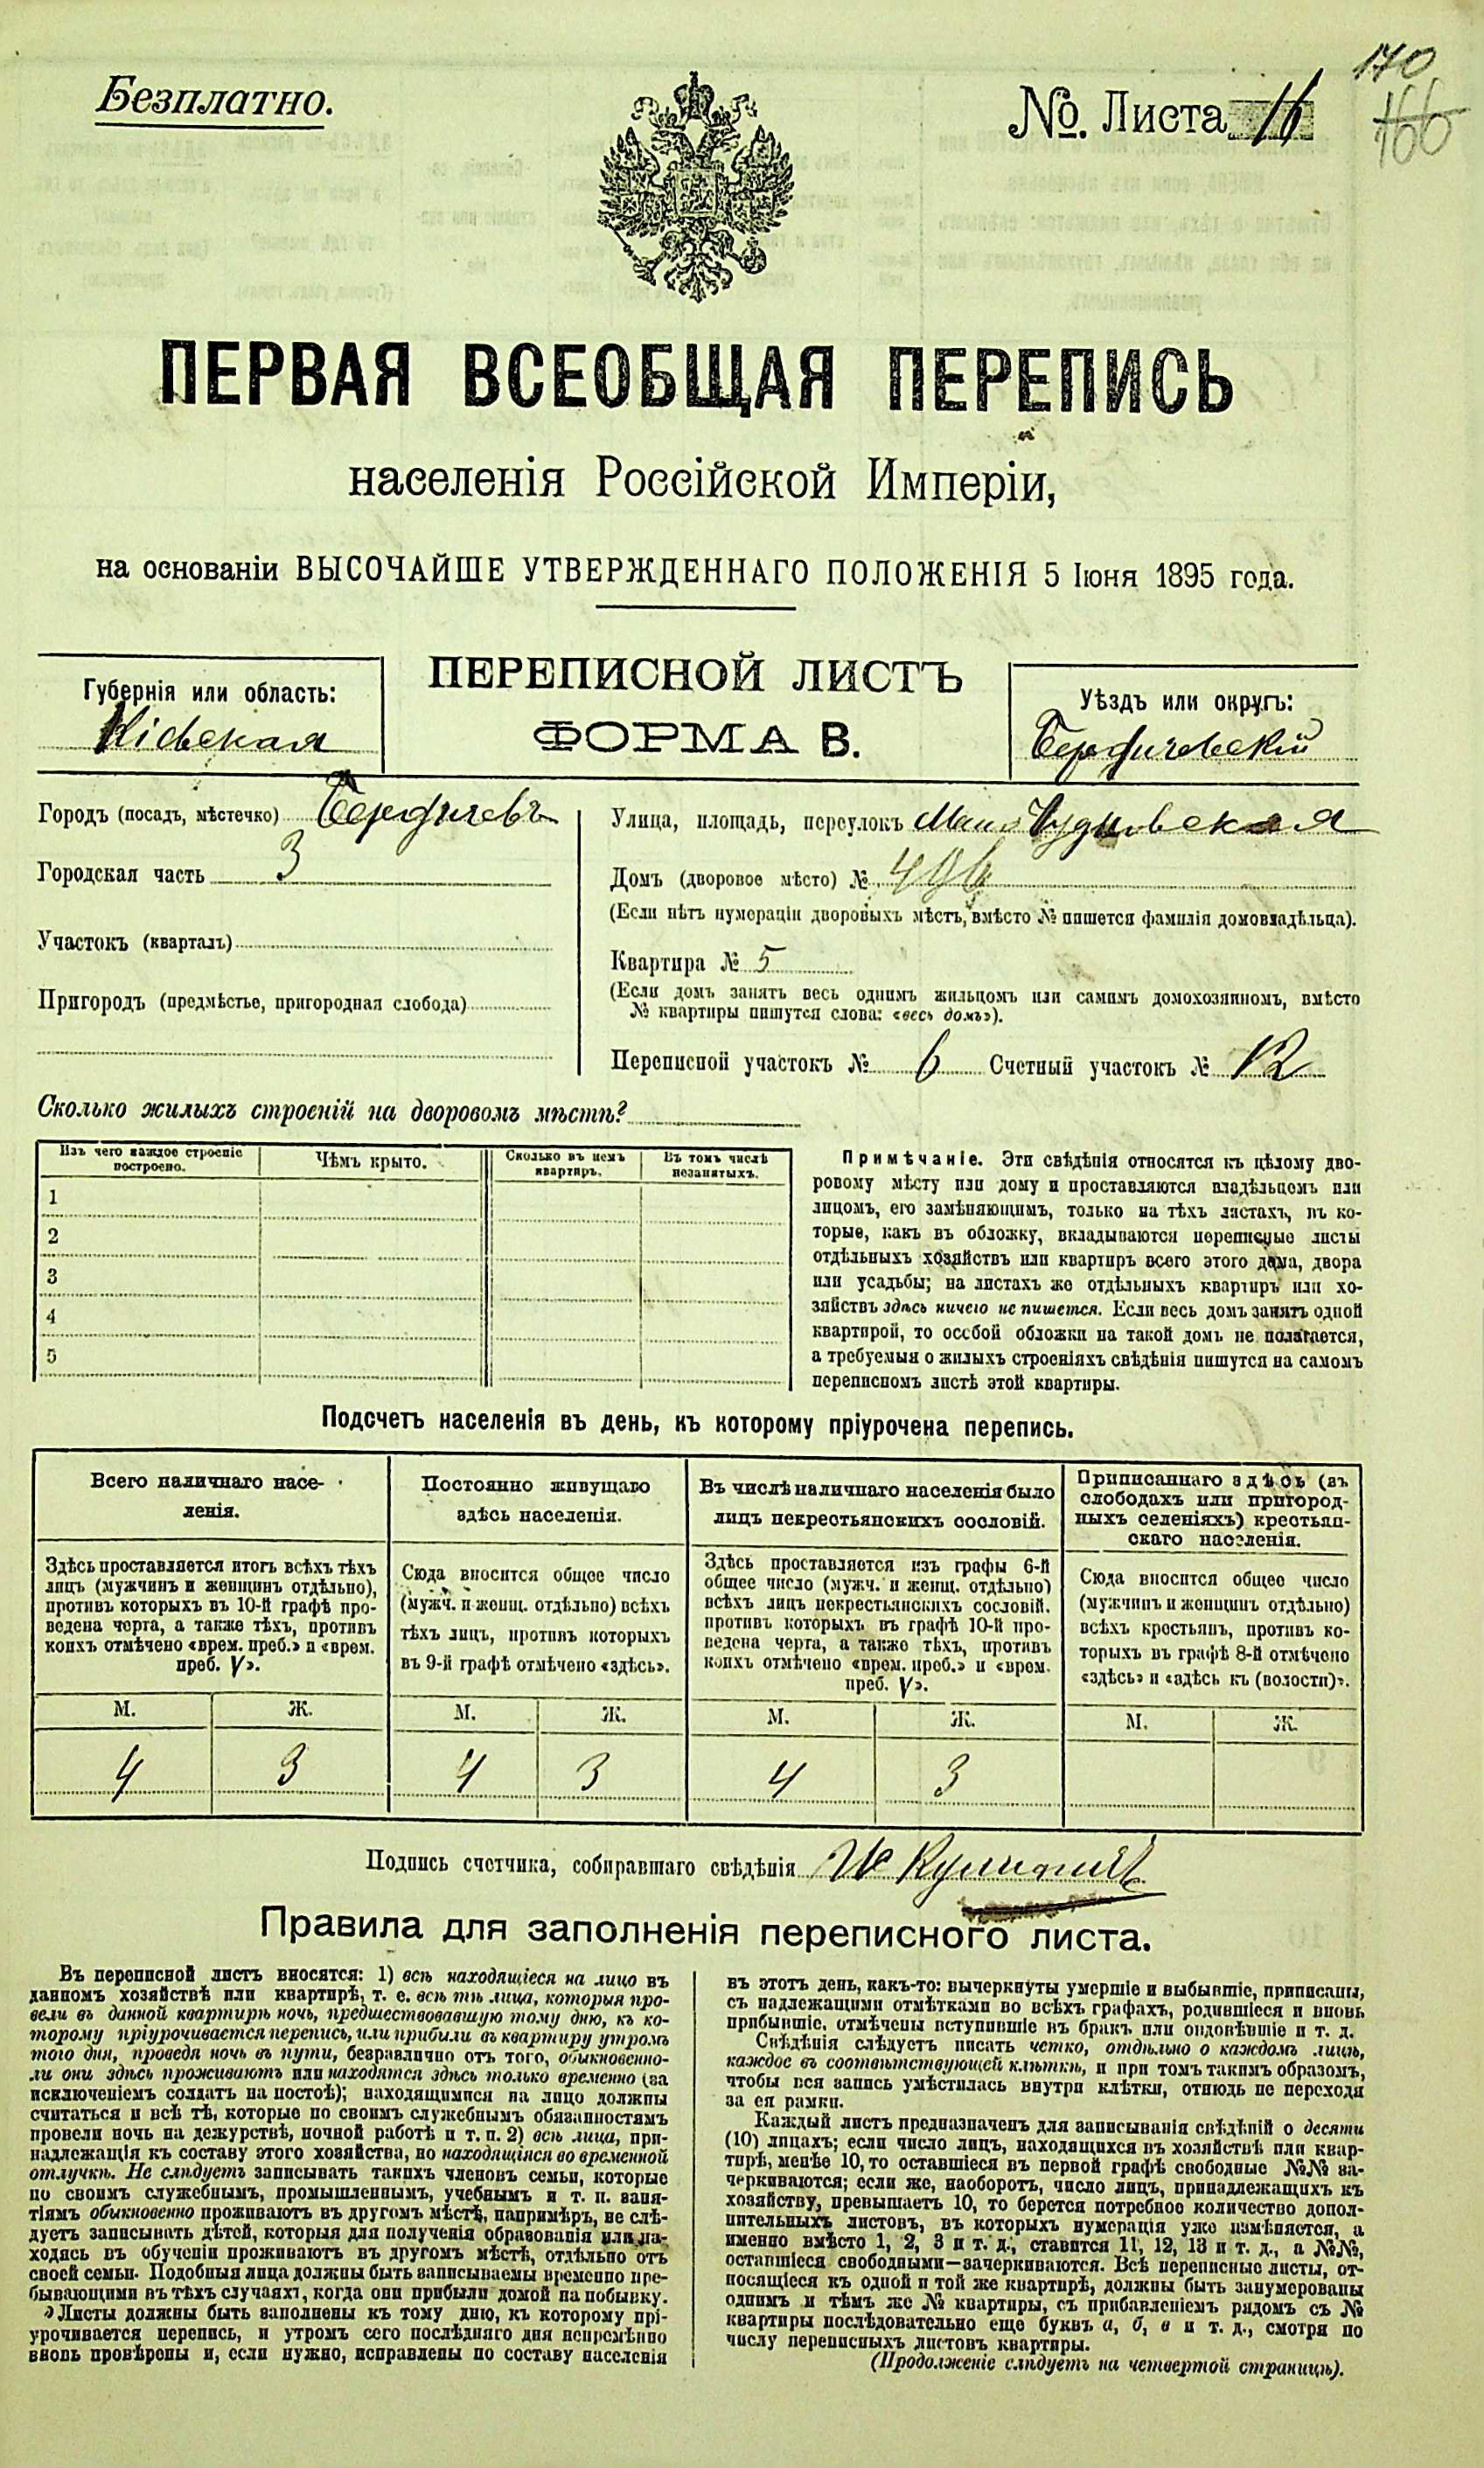 Безплатно.
№. Листа 16
170
166
ПЕРВАЯ ВСЕОБЩАЯ ПЕРЕПИСЬ
населенія Россійской Имперіи,
на основаніи ВЫСОЧАЙШЕ УТВЕРЖДЕННАГО ПОЛОЖЕНІЯ 5 Іюня 1895 года.
Губернія или область:
Кіевская
ПЕРЕПИСНОЙ ЛИСТЪ
ФОРМА В.
Уѣздъ или округъ:
Бердичевскій
Городъ (посадъ, мѣстечко) Бердичевъ
Городская часть 3
Участокъ (кварталъ)
Пригородъ (предмѣстье, пригородная слобода)
Улица, площадь, переулокъ Мало Чудновская
Домъ (дворовое мѣсто) № 496
(Если нѣтъ нумераціи дворовыхъ мѣстъ, вмѣсто № пишется фамилія домовладѣльца).
Квартира № 5
(Если домъ занятъ весь однимъ жильцомъ или самимъ домохозяиномъ, вмѣсто
№ квартиры пишутся слова: «весь домъ»).
Переписной участокъ № 6 Счетный участокъ № 12
Сколько жилыхъ строеній на дворовомъ мѣстѣ?
Изъ чего каждое строеніе
построено.
Чѣмъ крыто.
Сколько въ немъ
квартиръ.
Въ томъ числѣ
незанятыхъ.
1
2
3
4
5
Примѣчаніе. Эти свѣдѣнія относятся къ цѣлому дво-
ровому мѣсту или дому и проставляются владѣльцемъ или
лицомъ, его замѣняющимъ, только на тѣхъ листахъ, въ ко-
торые, какъ въ обложку, вкладываются переписные листы
отдѣльныхъ хозяйствъ или квартиръ всего этого дома, двора
или усадьбы; на листахъ же отдѣльныхъ квартиръ или хо-
зяйствъ здѣсь ничего не пишется. Если весь домъ занятъ одной
квартирой, то особой обложки на такой домъ не полагается,
а требуемыя о жилыхъ строеніяхъ свѣдѣнія пишутся на самомъ
переписномъ листѣ этой квартиры.
Подсчетъ населенія въ день, къ которому пріурочена перепись.
Всего наличнаго насе-
ленія.
Здѣсь проставляется итогъ всѣхъ тѣхъ
лицъ (мужчинъ и женщинъ отдѣльно),
противъ которыхъ въ 10-й графѣ про-
ведена черта, а также тѣхъ, противъ
коихъ отмѣчено «врем. преб.» и «врем.
преб. V».
М. Ж.
4 3
Постоянно живущаго
здѣсь населенія.
Сюда вносится общее число
(мужч. и женщ. отдѣльно) всѣхъ
тѣхъ лицъ, противъ которыхъ
въ 9-й графѣ отмѣчено «здѣсь».
М. Ж.
4 3
Въ числѣ наличнаго населенія было
лицъ некрестьянскихъ сословій.
Здѣсь проставляется изъ графы 6-й
общее число (мужч. и женщ. отдѣльно)
всѣхъ лицъ некрестьянскихъ сословій,
противъ которыхъ въ графѣ 10-й про-
ведена черта, а также тѣхъ, противъ
коихъ отмѣчено «врем. преб.» и «врем.
преб. V».
М. Ж.
4 3
Приписаннаго здѣсь (въ
слободахъ или пригород-
ныхъ селеніяхъ) крестьян-
скаго населенія.
Сюда вносится общее число
(мужчинъ и женщинъ отдѣльно)
всѣхъ крестьянъ, противъ ко-
торыхъ въ графѣ 8-й отмѣчено
«здѣсь» и «здѣсь къ (волости)».
М. Ж.
Подпись счетчика, собиравшаго свѣдѣнія
Правила для заполненія переписного листа.
Въ переписной листъ вносятся: 1) всѣ находящіеся на лицо въ
данномъ хозяйствѣ или квартирѣ, т. е. всѣ тѣ лица, которыя про-
вели въ данной квартирѣ ночь, предшествовавшую тому дню, къ ко-
торому пріурочивается перепись, или прибыли въ квартиру утромъ
того дня, проведя ночь въ пути, безразлично отъ того, обыкновенно-
ли они здѣсь проживаютъ или находятся здѣсь только временно (за
исключеніемъ солдатъ на постоѣ); находящимися на лицо должны
считаться и всѣ тѣ, которые по своимъ служебнымъ обязанностямъ
провели ночь на дежурствѣ, ночной работѣ и т. п. 2) всѣ лица, при-
надлежащія къ составу этого хозяйства, но находящіяся во временной
отлучкѣ. Не слѣдуетъ записывать такихъ членовъ семьи, которые
по своимъ служебнымъ, промышленнымъ, учебнымъ и т. п. заня-
тіямъ обыкновенно проживаютъ въ другомъ мѣстѣ, напримѣръ, не слѣ-
дуетъ записывать дѣтей, которыя для полученія образованія или на-
ходясь въ обученіи проживаютъ въ другомъ мѣстѣ, отдѣльно отъ
своей семьи. Подобныя лица должны быть записываемы временно пре-
бывающими въ тѣхъ случаяхъ, когда они прибыли домой на побывку.
Листы должны быть заполнены къ тому дню, къ которому прі-
урочивается перепись, и утромъ сего послѣдняго дня непремѣнно
вновь провѣрены и, если нужно, исправлены по составу населенія
въ этотъ день, какъ-то: вычеркнуты умершіе и выбывшіе, приписаны,
съ надлежащими отмѣтками во всѣхъ графахъ, родившіеся и вновь
прибывшіе, отмѣчены вступившіе въ бракъ или овдовѣвшіе и т. д.
Свѣдѣнія слѣдуетъ писать четко, отдѣльно о каждомъ лицѣ,
каждое въ соотвѣтствующей клѣткѣ, и при томъ такимъ образомъ,
чтобы вся запись умѣстилась внутри клѣтки, отнюдь не переходя
за ея рамки.
Каждый листъ предназначенъ для записыванія свѣдѣній о десяти
(10) лицахъ; если число лицъ, находящихся въ хозяйствѣ или квар-
тирѣ, менѣе 10, то оставшіеся въ первой графѣ свободные №№ за-
черкиваются; если же, наоборотъ, число лицъ, принадлежащихъ къ
хозяйству, превышаетъ 10, то берется потребное количество допол-
нительныхъ листовъ, въ которыхъ нумерація уже измѣняется, а
именно вмѣсто 1, 2, 3 и т. д., ставится 11, 12, 13 и т. д., а №№,
оставшіеся свободными—зачеркиваются. Всѣ переписные листы, от-
носящіеся къ одной и той же квартирѣ, должны быть занумерованы
однимъ и тѣмъ же № квартиры, съ прибавленіемъ рядомъ съ №
квартиры послѣдовательно еще буквъ а, б, в и т. д., смотря по
числу переписныхъ листовъ квартиры.
(Продолженіе слѣдуетъ на четвертой страницѣ).